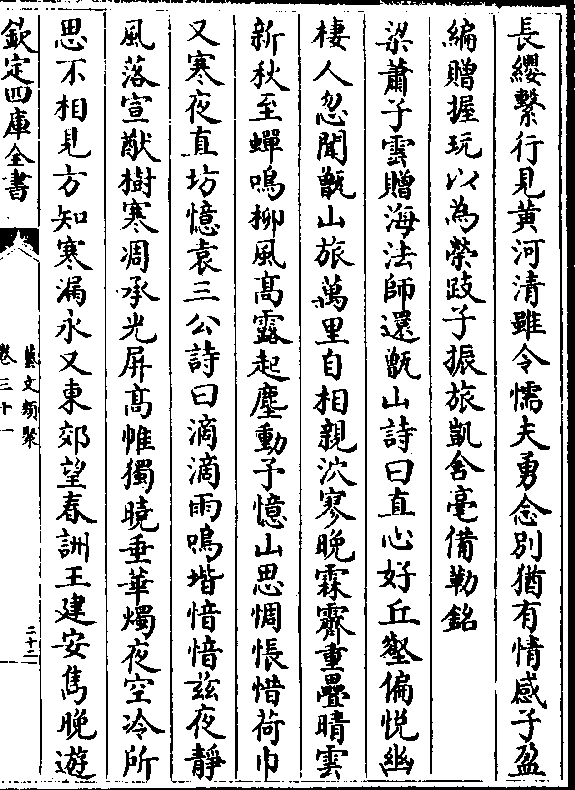 長纓繫行見黄河清雖令懦夫勇念別猶有情感子盈
編贈握玩以為榮跂子振旅凱含毫備勒銘
梁蕭子雲贈海法師還甑山詩曰直心好丘壑偏悦幽
棲人忽聞甑山旅萬里自相親泬寥晚霖霽重疊晴雲
新秋至蟬鳴柳風髙露起塵動予憶山思惆悵惜荷巾
又寒夜直坊憶袁三公詩曰滴滴雨鳴堦愔愔兹夜靜
風落宣猷樹寒凋承光屏髙帷獨曉垂華燭夜空冷所
思不相見方知寒漏永又東郊望春詶王建安雋晚遊
欽定四庫全書
藝文類聚
卷三十一
二十二